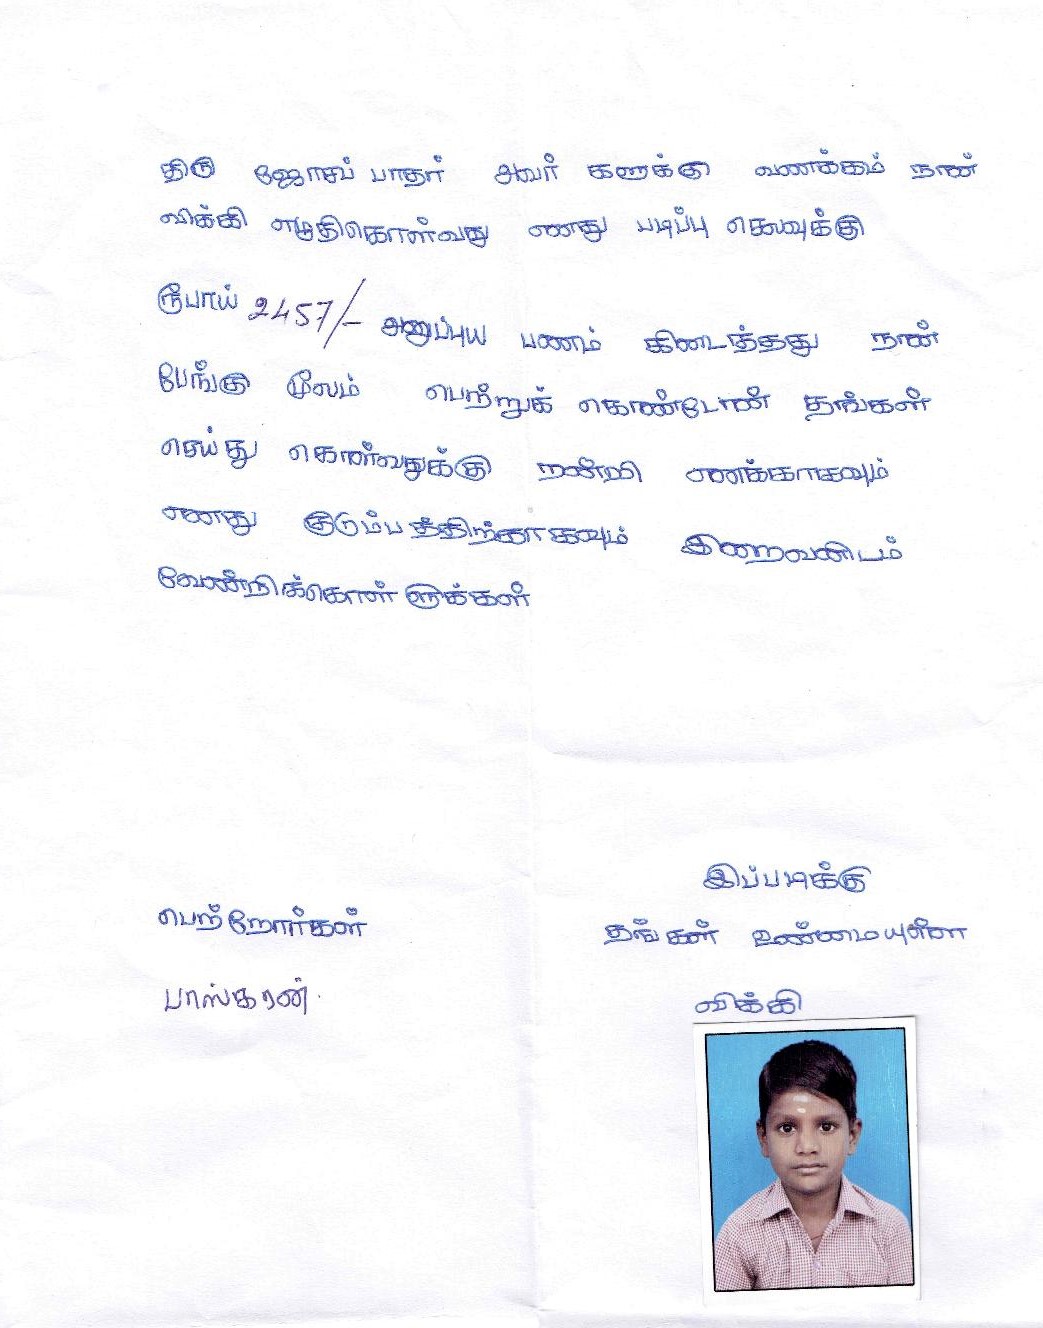 திரு ஜோசப் பாதர் அவர் களுக்கு வணக்கம் நான்
விக்கி எழுதிகொள்வது எனது படிப்பு செலவுக்கு
ரூபாய் 2457/- அனுப்புய பணம் கிடைத்தது நான்
பேங்கு மூலம் பெற்றுக் கொண்டோன் தாங்கள்
செய்து கொண்வதுக்கு நன்றி எனக்காகவும்
எனது குடும்பத்திற்காகவும் இறைவனிடம்
வேண்றிக்கொள் ளுக்கள்
இப்படிக்கு
பெற்றோர்கள் தங்கள் உண்மையுள்ள
பாஸ்கரன் விக்கி